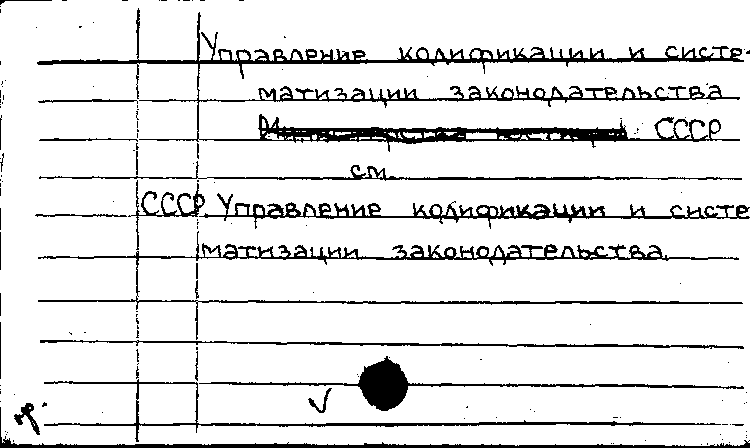 Управление кодификации и систе-
матизации законодательства
Министерства юстиции СССР
см.
СССР. Управление кодификации и систе
матизации законодательства.